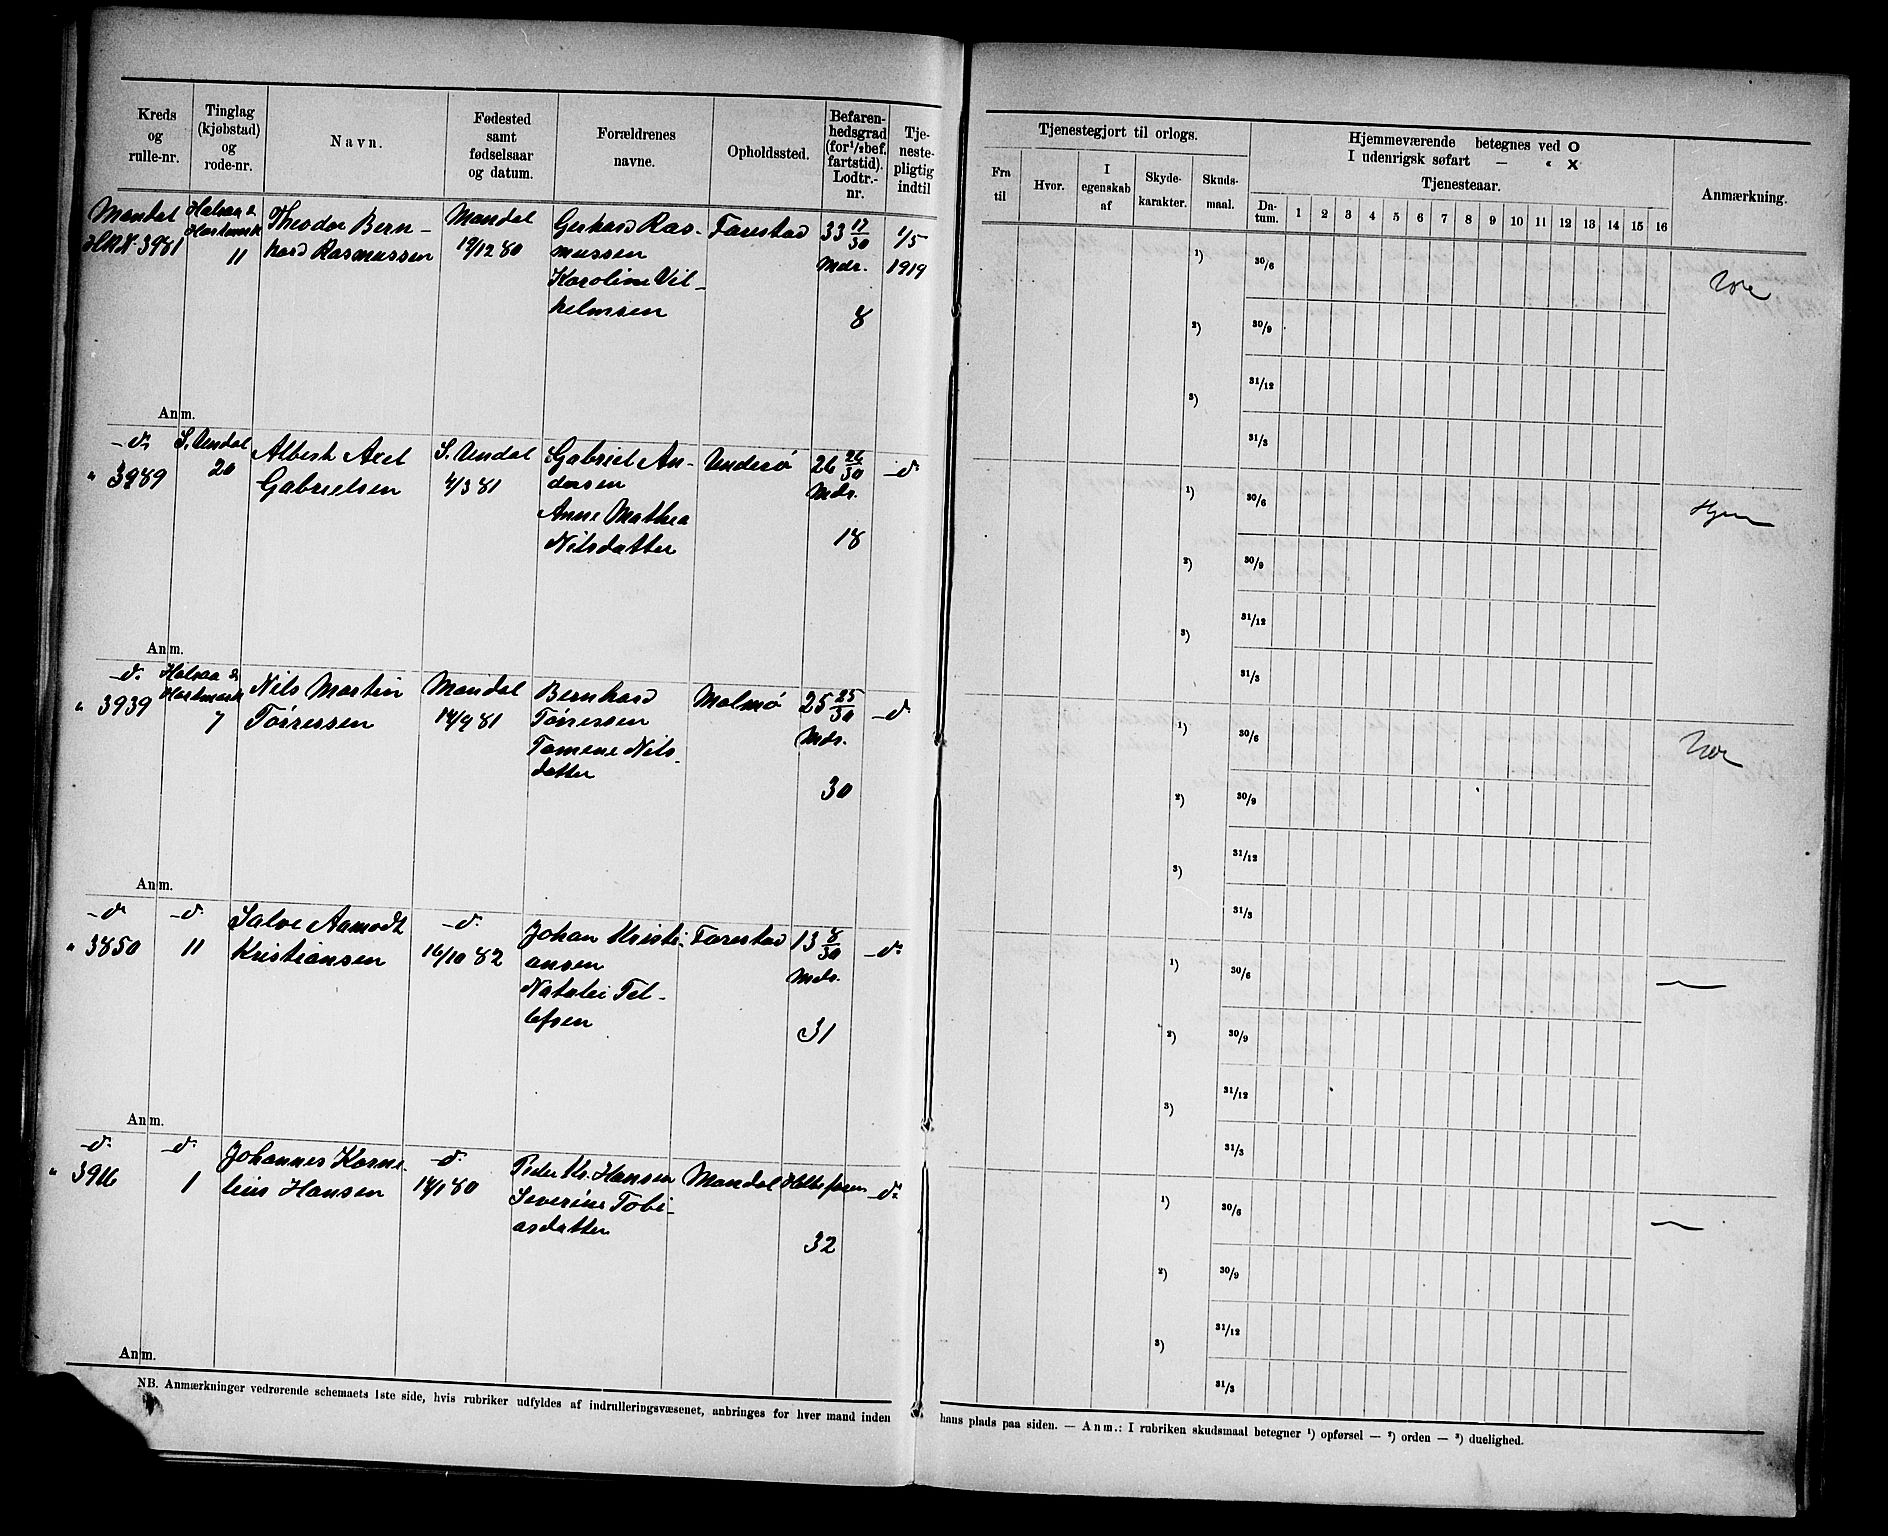 Kreds og rulle-nr.
Tinglag (kjøbstad) og rode-nr.
Navn.
Fødested samt fødselsaar og datum.
Forældrenes navne.
Opholdssted.
Befaren-hedsgrad (for 1/2bef. fartstid). Lodtr.-nr.
Tje-neste-pligtig indtil
Tjenestegjort til orlogs.
Fra til
Hvor.
I egenskab af
Skyde-karakter.
Skuds-maal.
Hjemmeværende betegnes ved O
I udenrigsk søfart — " X
Tjenesteaar.
Da-tum.
1 2 3 4 5 6 7 8 9 10 11 12 13 14 15 16
Anmærkning.
Mandal
3981
Halsaa &
Hartmark
11
Theodor Bern-
hard Rasmussen
Mandal
19/12 80
Gerhard Ras-
mussen
Karoline Vil-
helmsen
Farestad
33 17/30
Mdr.
8
1/5
1919
1)
2)
3)
30/6
30/9
31/12
31/3
Anm.
-d-
" 3989
S. Undal
20
Albert Axel
Gabrielsen
S. Undal
4/3 81
Gabriel An-
dersen
Anne Mathea
Nilsdatter
Underø
26 26/30
Mdr.
18
-d-
1)
2)
3)
30/6
30/9
31/12
31/3
Hjem
Anm.
-d-
" 3939
Halsaa &
Hartmark
7
Nils Martin
Tørressen
Mandal
14/9 81
Bernhard
Tørressen
Tomene Nils-
datter
Malmø
25 25/30
Mdr.
30
-d-
1)
2)
3)
30/6
30/9
31/12
31/3
Anm.
-d-
" 3850
-d-
11
Salve Aamodt
Kristiansen
-d-
16/10 82
Johan Kristi-
ansen
Natalie Tel-
lefsen
Farestad
13 8/30
Mdr.
31
-d-
1)
2)
3)
30/6
30/9
31/12
31/3
Anm.
-d-
" 3916
-d-
1
Johannes Korne-
lius Hansen
-d-
14/1 80
Peder Kr. Hansen
Severine Tobi-
asdatter
Mandal
Halvbefaren
32
-d-
1)
2)
3)
30/6
30/9
31/12
31/3
Anm.
NB. Anmærkninger vedrørende schemaets 1ste side, hvis rubriker udfyldes af indrulleringsvæsenet, anbringes for hver mand inden hans plads paa siden. — Anm.: I rubriken skudsmaal betegner 1) opførsel — 2) orden — 3) duelighed.